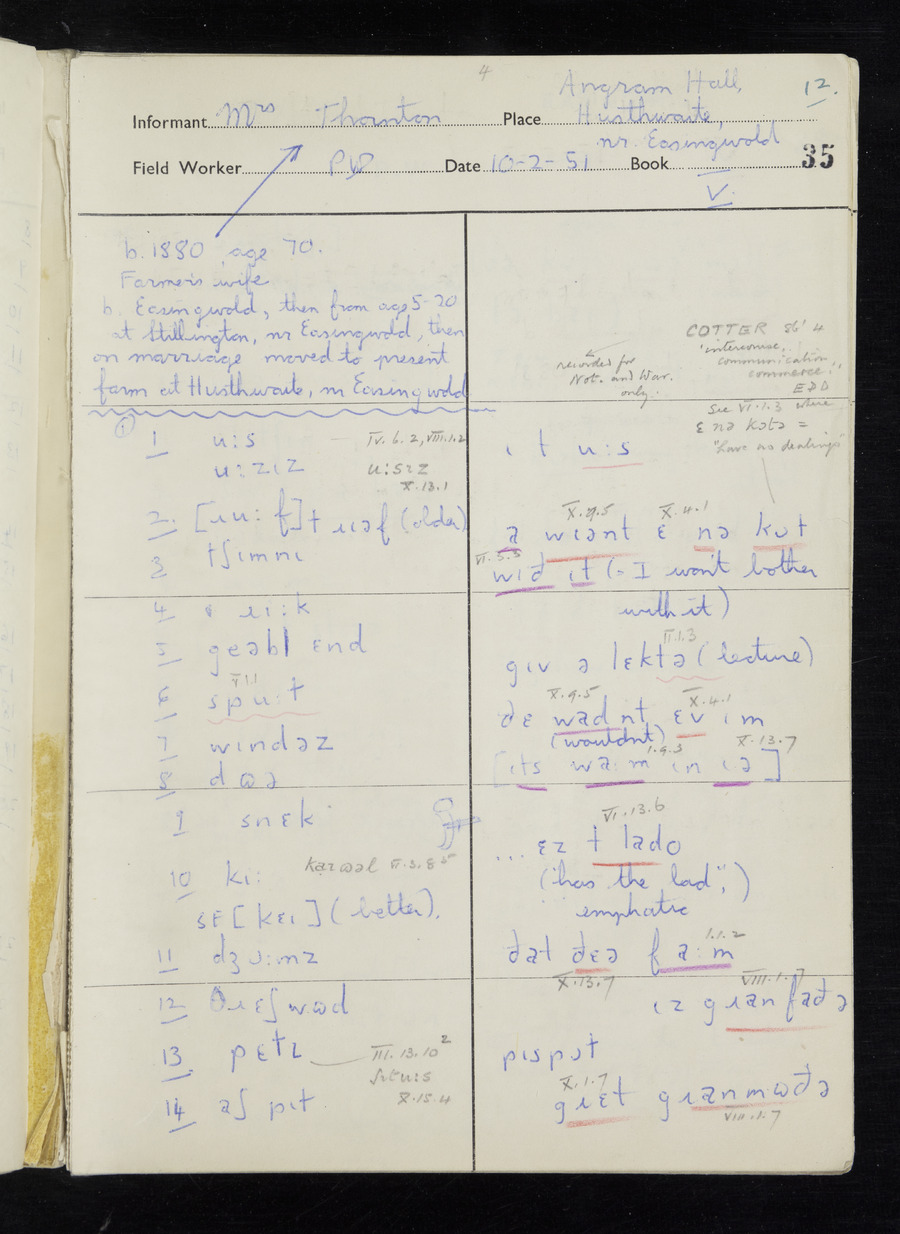 4
Angram Hall,
12.
Informant Mrs Thornton Place Husthwaite,
nr. Easingwold
Field Worker PW Date 10-2-51 Book 35
V.
b. 1880 age 70.
Farmer's wife
b. Easingwold, then from age 5-20
at Stillington, nr Easingwold, then
on marriage moved to present
farm at Husthwaite, nr Easingwold
1
1 u:s IV.6.2, VIII.1.2
u:zɪz u:sɪz
X.13.1
2. [ɹu:f] t ɹɪəf (older)
3 tʃɪmnɪ
4 ɹi:k
5 geəbl ɛnd
V.1.1
6 spu:t
7 wɪndəz
8 dɷə
9 snɛk
10 ki: kaɹɷəl
sɛ [kɛɪ] (better).
11 dʒu:mz
12 θɹɛʃwəd
13 pɛtz III.13.10 2
X.15.4
14 aʃ pɪt
COTTER sb' 4
'intercourse,
communication,
commerce.'
EDD
recorded for
Not. and War.
only.
See VI.1.3 where
ɛ nə kɔtə =
"have no dealings"
ɪ t u:s
X.9.5 X.4.1
a wɪənt ɛ nə kɷt
VI.5.3
wɪð ɪt (= I won't bother
with it)
II.1.3
gɪv ə lɛktə (lecture)
X.9.5 X.4.1
ðɛ wadnt ɛv ɪm
(wouldnt) 1.9.3 X.13.7
[ɪts wa:m ɪn ɪə]
VI.13.6
... ɛz t lado
("has the lad",)
emphatic
1.1.2
ðat ðɛə fa:m
X.13.7 VIII.1.7
ɪz gɹanfaðə
pɪspɷt
X.1.7
gɹɛt gɹanmɷðə
VIII.1.7